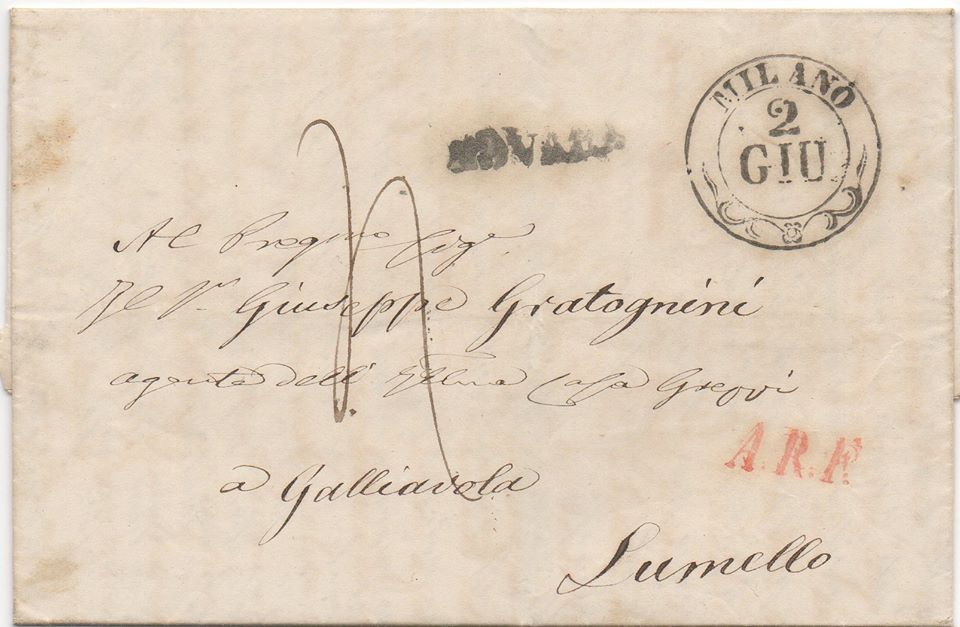 MILANO
2
GIU
NOVARA
Al Pregmo Sige
Il Sr Giuseppe Gratognini
agente dell' Casa Greppi
a Galliavola
A.R.F.
Lumello